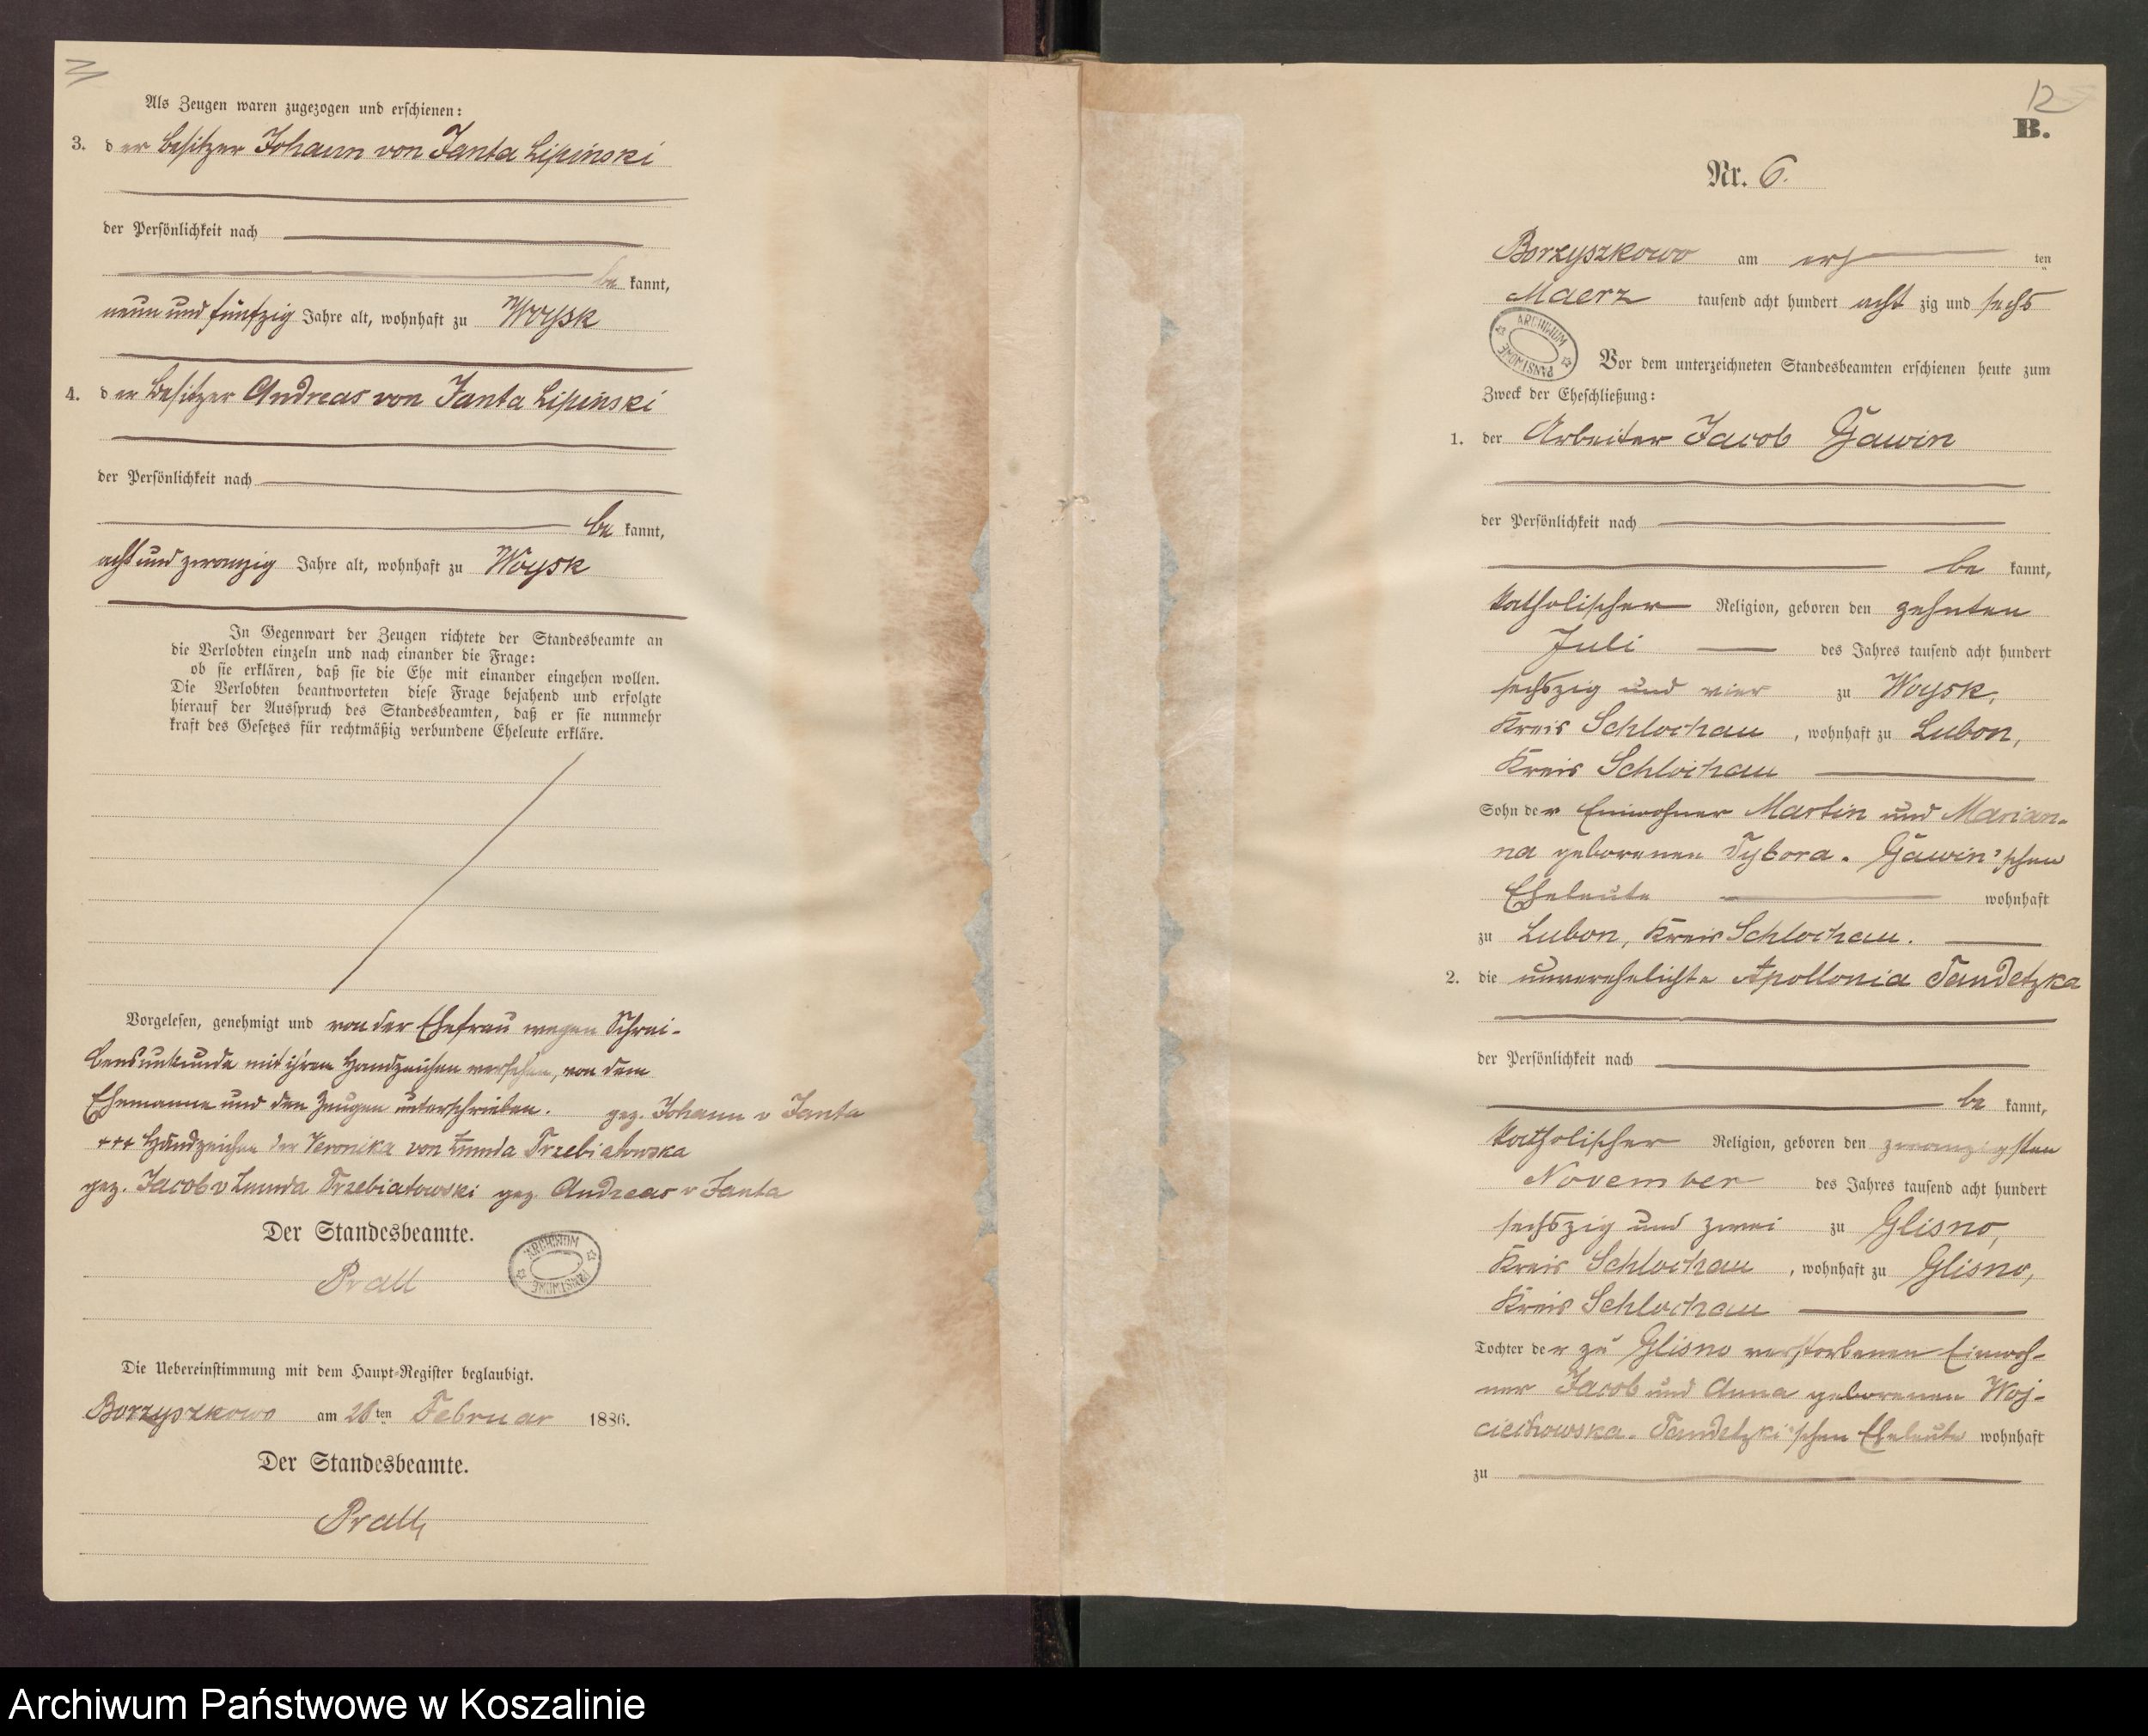 Als Zeugen waren zugezogen und erschienen:
3. der Besitzer Johann von Janta Lipinski
der Persönlichkeit nach
be kannt,
neun und fünfzig Jahre alt, wohnhaft zu Woysk
4. der Besitzer Andreas von Janta Lipinski
der Persönlichkeit nach
be kannt,
acht und zwanzig Jahre alt, wohnhaft zu Woysk
In Gegenwart der Zeugen richtete der Standesbeamte an
die Verlobten einzeln und nach einander die Frage:
ob sie erklären, daß sie die Ehe mit einander eingehen wollen.
Die Verlobten beantworteten diese Frage bejahend und erfolgte
hierauf der Ausspruch des Standesbeamten, daß er sie nunmehr
kraft des Gesetzes für rechtmäßig verbundene Eheleute erkläre.
Vorgelesen, genehmigt und von der Ehefrau wegen Schrei-
bensunkunde mit ihren Handzeichen versehen, von dem
Ehemanne und den Zeugen unterschrieben. gez. Johann v Janta
+++ Handzeichen der Veronika von Trzebiatowska
gez. Jacob v Trzebiatowski gez. Andreas v Janta
Der Standesbeamte.
Prall
ARCHIWUM PAŃSTWOWE
Die Uebereinstimmung mit dem Haupt-Register beglaubigt.
Borzyszkowo am ten Februar 1886.
Der Standesbeamte.
Prall,
12
B.
Nr. 6.
Borzyszkowo am ers ten
Maerz tausend acht hundert acht zig und sechs
ARCHIWUM PAŃSTWOWE
Vor dem unterzeichneten Standesbeamten erschienen heute zum
Zweck der Eheschließung:
1. der Arbeiter Jacob Gawin
der Persönlichkeit nach
be kannt,
katholischer Religion, geboren den zehnten
Juli des Jahres tausend acht hundert
sechszig und vier zu Woysk,
Kreis Schlochau, wohnhaft zu Lubon,
Kreis Schlochau
Sohn der Einwohner Martin und Marian-
na geborenen Tybora. Gawin'schen
Eheleute wohnhaft
zu Lubon, Kreis Schlochau.
2. die unverehelichte Apollonia Tandetzka
der Persönlichkeit nach
be kannt,
katholischer Religion, geboren den zwanzigsten
November des Jahres tausend acht hundert
sechszig und zwei zu Glisno,
Kreis Schlochau, wohnhaft zu Glisno,
Kreis Schlochau
Tochter der zu Glisno verstorbenen Einwoh-
ner Jacob und Anna geborenen Woj-
ciechowska. Tandetzki'schen Eheleute wohnhaft
zu
Archiwum Państwowe w Koszalinie